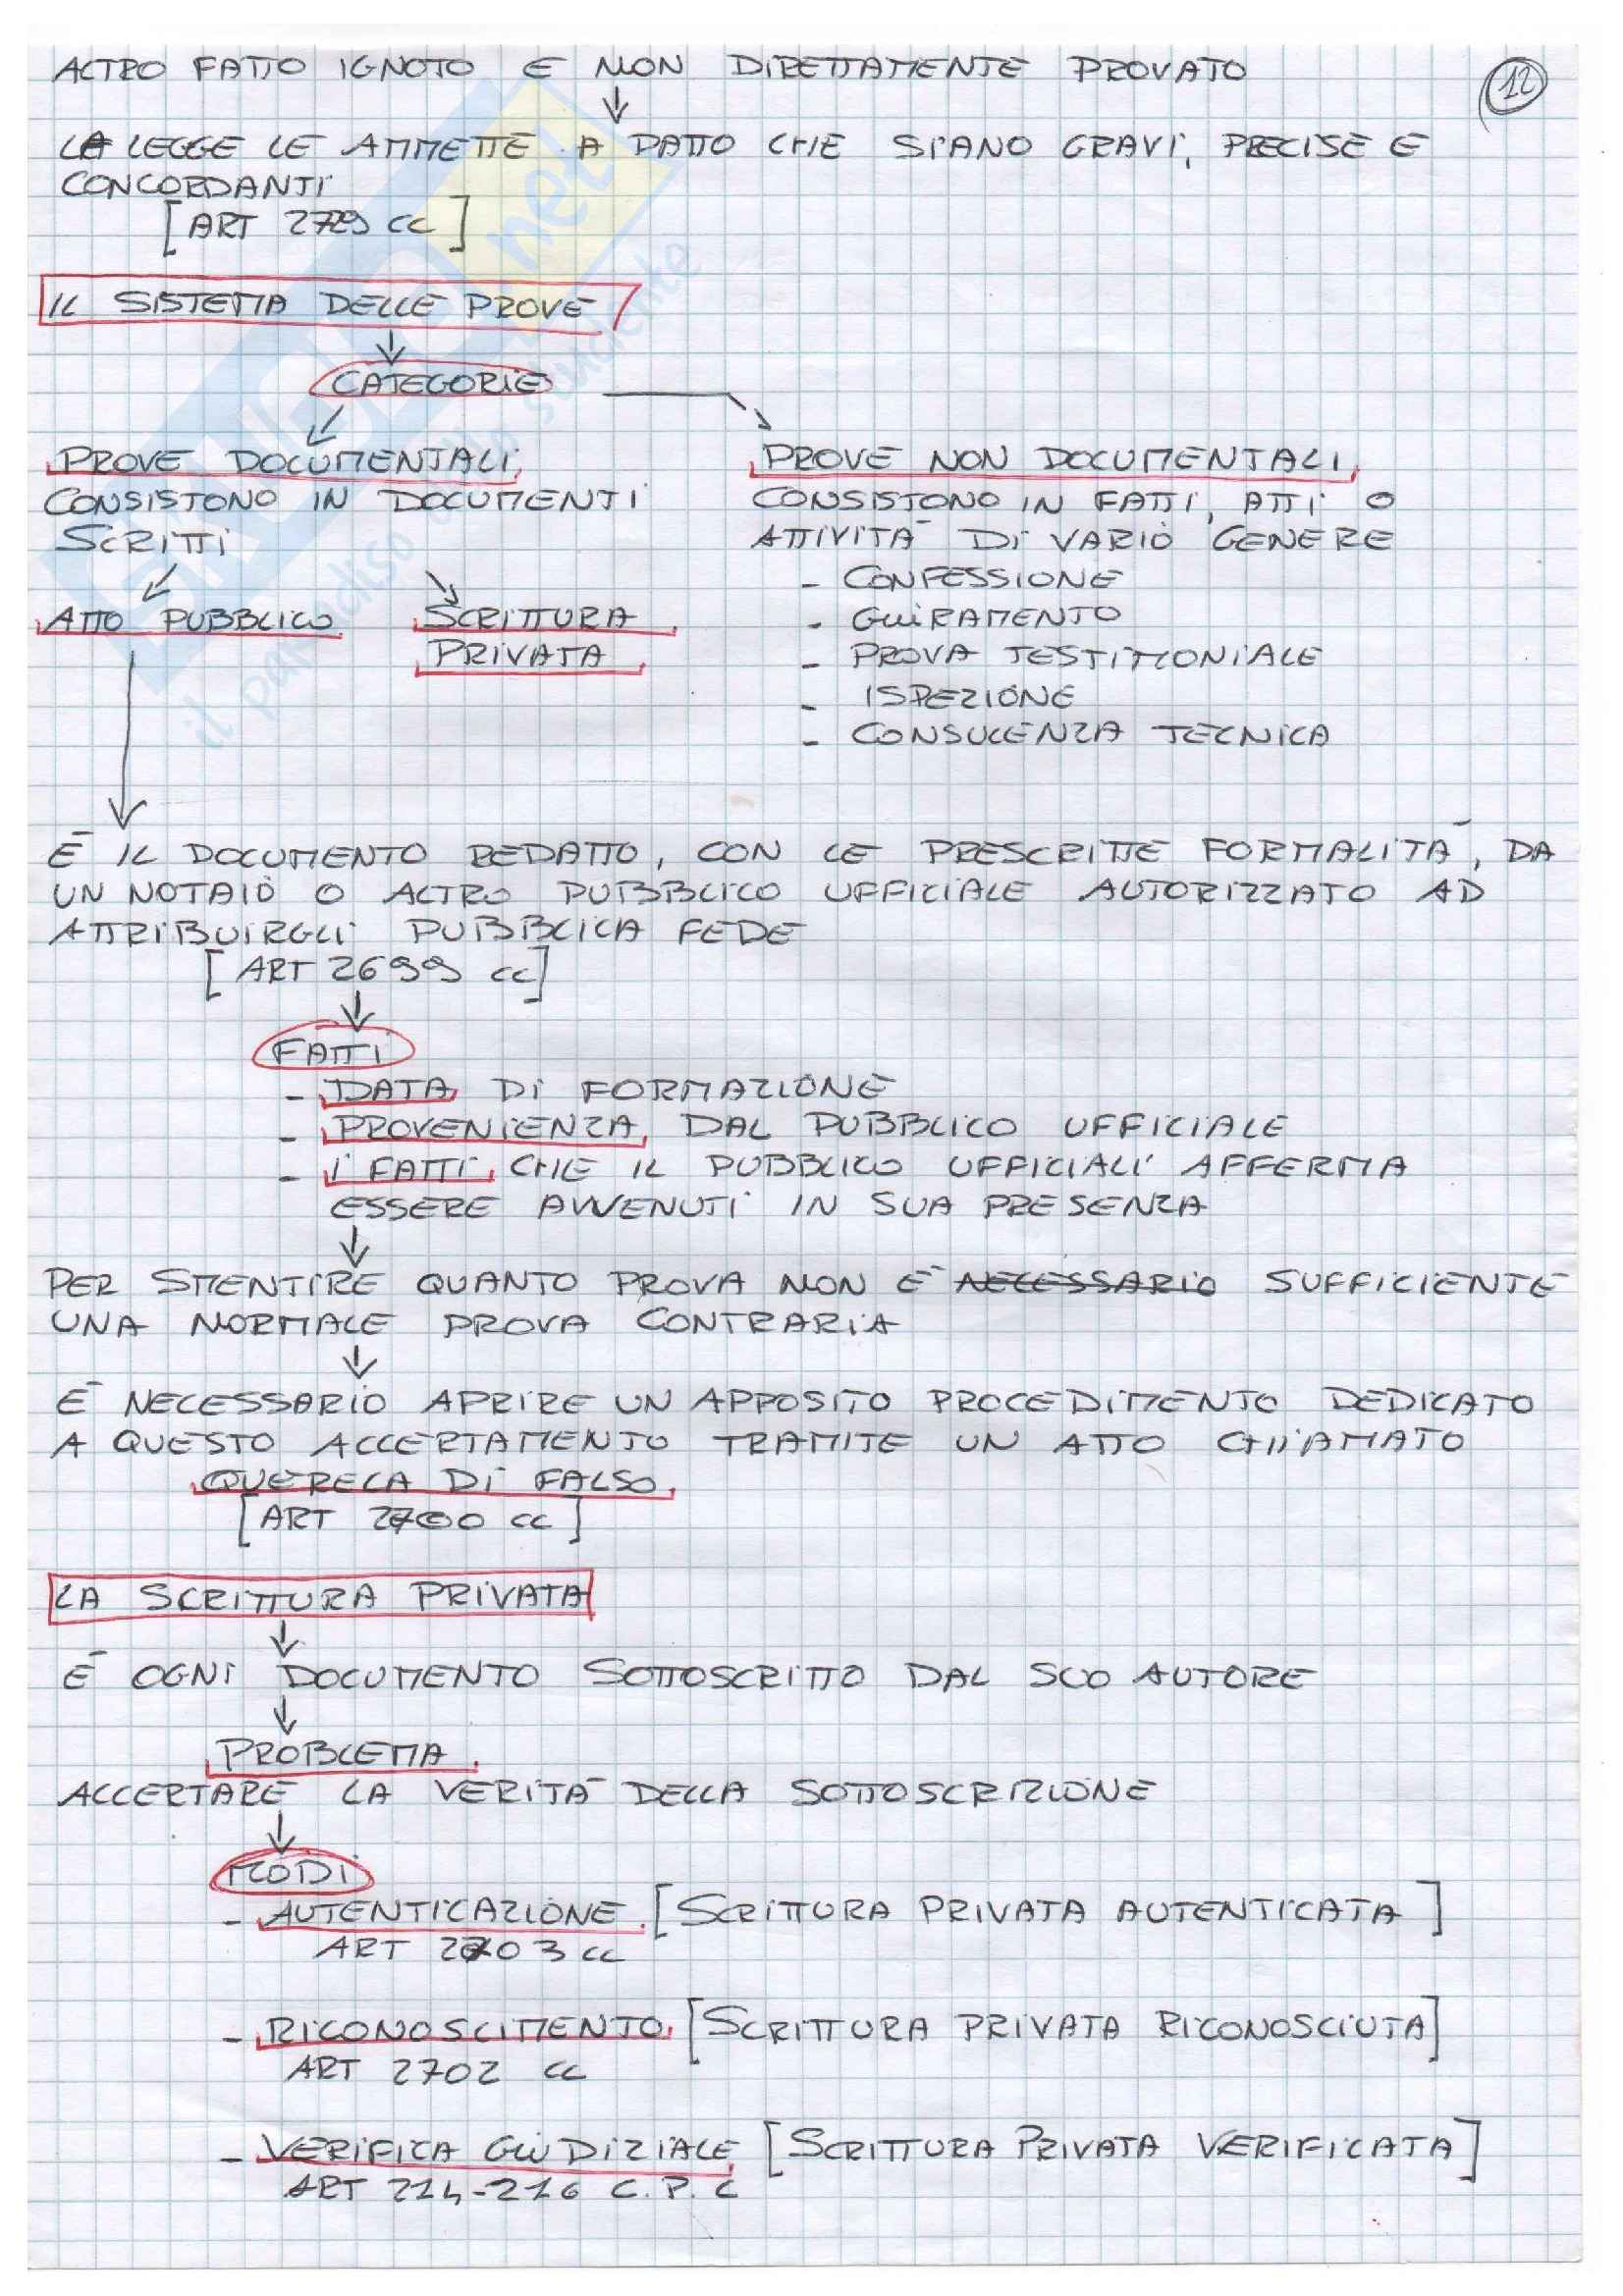 ALTRO FATTO IGNOTO E NON DIRETTAMENTE PROVATO
12
LA LEGGE LE AMMETTE A PATTO CHE SIANO GRAVI, PRECISE E
CONCORDANTI
[ART 2729 CC]
IL SISTEMA DELLE PROVE
CATEGORIE
PROVE DOCUMENTALI
CONSISTONO IN DOCUMENTI
SCRITTI
ATTO PUBBLICO
SCRITTURA
PRIVATA
PROVE NON DOCUMENTALI
CONSISTONO IN FATTI, ATTI O
ATTIVITÀ DI VARIO GENERE
- CONFESSIONE
- GUIRAMENTO
- PROVA TESTIMONIALE
- ISPEZIONE
- CONSULENZA TECNICA
È IL DOCUMENTO REDATTO, CON LE PRESCRITTE FORMALITÀ, DA
UN NOTAIO O ALTRO PUBBLICO UFFICIALE AUTORIZZATO AD
ATTRIBUIRGLI PUBBLICA FEDE
[ART 2699 CC]
FATTI
- DATA DI FORMAZIONE
- PROVENIENZA DAL PUBBLICO UFFICIALE
- I FATTI CHE IL PUBBLICO UFFICIALI AFFERMA
ESSERE AVVENUTI IN SUA PRESENZA
PER SMENTIRE QUANTO PROVA NON È NECESSARIO SUFFICIENTE
UNA NORMALE PROVA CONTRARIA
È NECESSARIO APRIRE UN APPOSITO PROCEDIMENTO DEDICATO
A QUESTO ACCERTAMENTO TRAMITE UN ATTO CHIAMATO
QUERELA DI FALSO
[ART 2700 CC]
LA SCRITTURA PRIVATA
È OGNI DOCUMENTO SOTTOSCRITTO DAL SUO AUTORE
PROBLEMA
ACCERTARE LA VERITÀ DELLA SOTTOSCRIZIONE
MODI
- AUTENTICAZIONE [SCRITTURA PRIVATA AUTENTICATA]
ART 2703 CC
- RICONOSCIMENTO [SCRITTURA PRIVATA RICONOSCIUTA]
ART 2702 CC
- VERIFICA GIUDIZIALE [SCRITTURA PRIVATA VERIFICATA]
ART 214-216 C.P.C